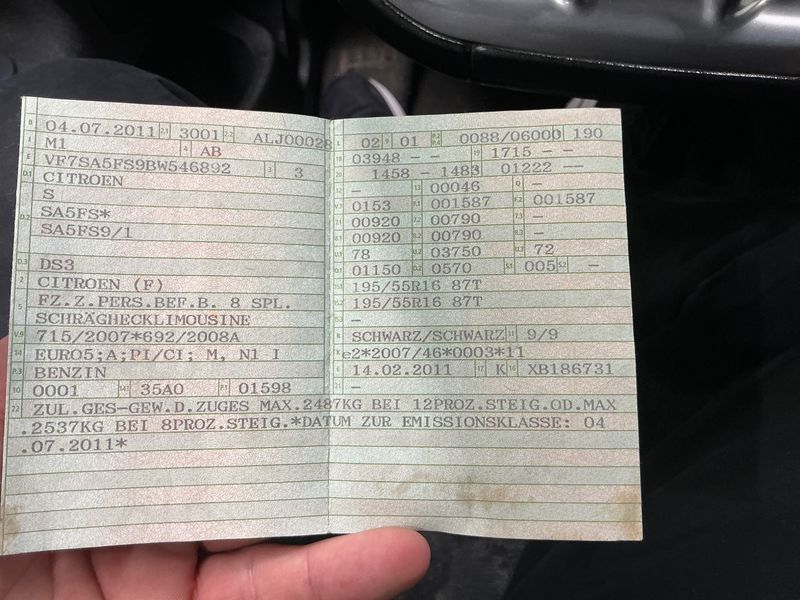 B 04.07.2011 2.1 3001 2.2 ALJ00028
J M1 4 AB
E VF7SA5FS9BW546892 3 3
D.1 CITROEN
S
D.2 SA5FS*
SA5FS9/1
D.3 DS3
2 CITROEN (F)
5 FZ.Z.PERS.BEF.B. 8 SPL.
SCHRÄGHECKLIMOUSINE
V.9 715/2007*692/2008A
14 EURO5;A;PI/CI; M, N1 I
P.3 BENZIN
10 0001 14.1 35A0 P.1 01598
L 02 9 01 P.2 P.4 0088/06000 190
18 03948 - - 19 1715 - -
20 1458 - 1483 01222 --
12 - 13 00046 Q -
V.7 0153 F.1 001587 F.2 001587
7.1 00920 7.2 00790 7.3 -
8.1 00920 8.2 00790 8.3 -
U.1 78 U.2 03750 U.3 72
O.1 01150 O.2 0570 S.1 005 S.2 -
15.1 195/55R16 87T
15.2 195/55R16 87T
R SCHWARZ/SCHWARZ 11 9/9
K e2*2007/46*0003*11
6 14.02.2011 17 K 16 XB186731
21 -
22 ZUL.GES-GEW.D.ZUGES MAX.2487KG BEI 12PROZ.STEIG.OD.MAX
.2537KG BEI 8PROZ.STEIG.*DATUM ZUR EMISSIONSKLASSE: 04
.07.2011*